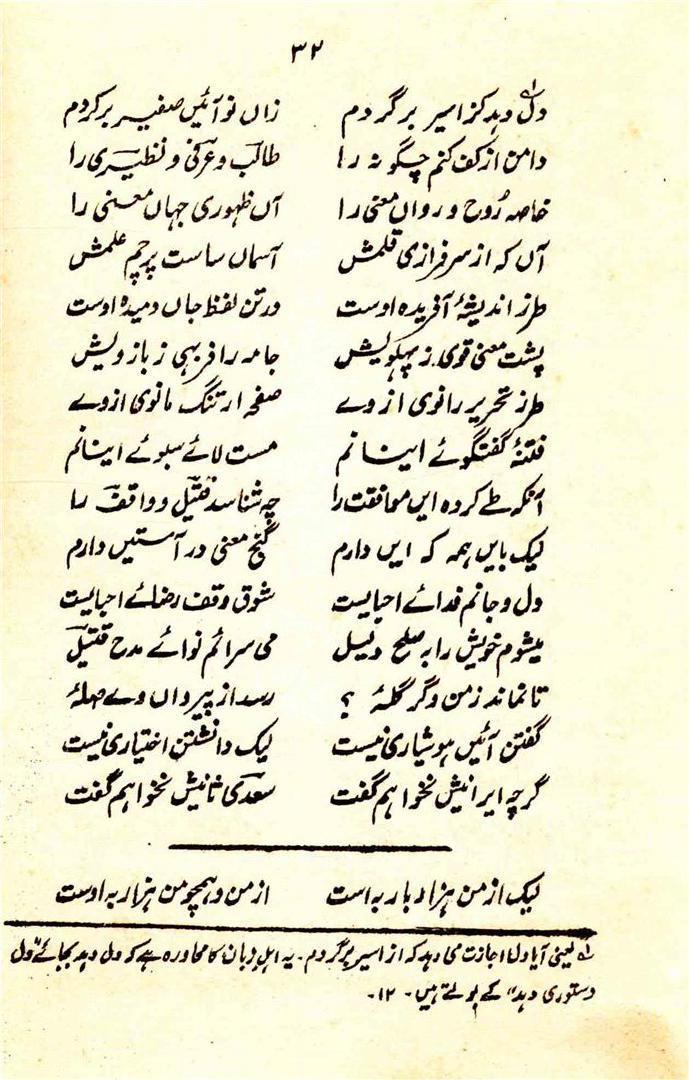 ۳۲
دل دہد کز اسیر برگردم زاں نو آئیں صفیر برگردم
دامن از کف کنم چگونہ را طالب و عرفی و نظیری را
خاصہ رُوح و روانِ معنی را آں ظہوری جہانِ معنی را
آں کہ از سرفرازی قلمش آسماں ساست پرچم علمش
طرز اندیشۂ آفریدہ اوست در تن لفظ جاں دمیدہ اوست
پشت معنی قوی ز پہلویش خامہ را فربہی ز بازویش
طرز تحریر را نوی از وے صفحہ ارتنگ مانوی از وے
فتنۂ گفتگوئے اینانم مست لائے سبوئے اینانم
آنکہ طے کردہ ایں مواقف را چہ شناسد قتیل و واقف را
لیک بایں ہمہ کہ ایں دارم گنج معنی در آستیں دارم
دل و جانم فدائے احبابست شوق وقف رضائے احبابست
میشوم خویش را بہ صلح دلیل می سرائم نوائے مدح قتیل
تا نماند ز من دگر گلۂ ؟ رسد از پیروانِ وے صلۂ
گفتن آئیں ہوشیاری نیست لیک دانستن اختیاری نیست
گرچہ ایرانیش نخواہم گفت سعدی ثانیش نخواہم گفت
لیک از من ہزار بار بہ است از من و ہمچو من ہزار بہ اوست
۱؎ یعنی آیا دل اجازت می دہد کہ از اسیر برگردم ۔ یہ اہل زبان کا محاورہ ہے کہ دل دہد بجائے "دل
دستوری دہد" کے بولتے ہیں ۔ ۱۲ ۔